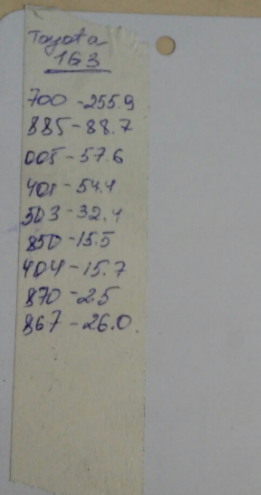 Toyota
1G3
700 - 255.9
885 - 88.7
005 - 57.6
401 - 54.4
503 - 32.4
850 - 15.5
404 - 15.7
870 - 2.5
867 - 26.0.